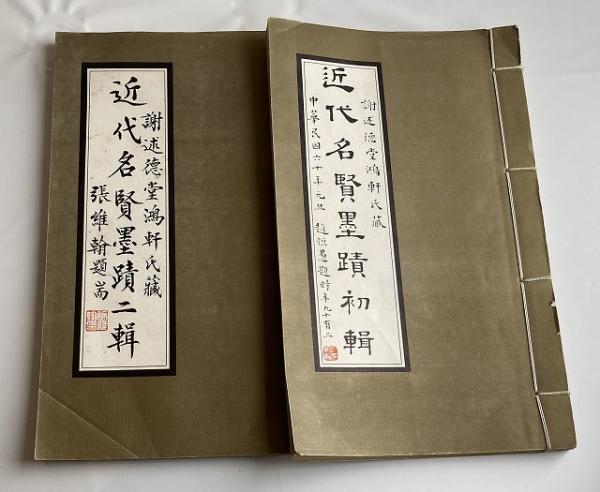 謝述德堂鴻軒氏藏
近代名賢墨蹟初輯
中華民國六十年元旦 趙恆惕題時年九十有二
謝述德堂鴻軒氏藏
近代名賢墨蹟二輯
張維翰題耑